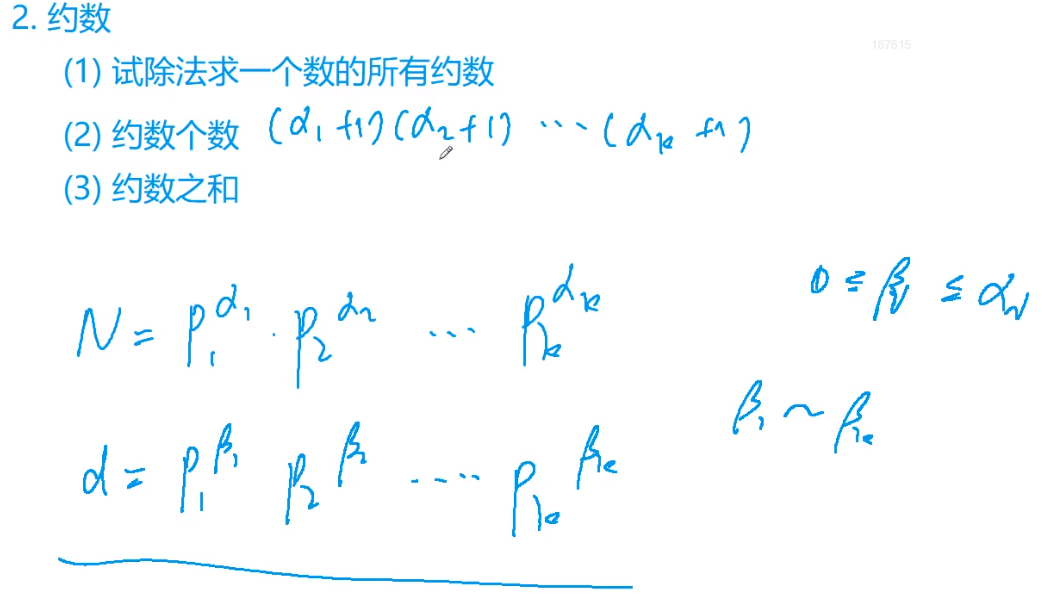 2. 约数
167615
(1) 试除法求一个数的所有约数
(2) 约数个数 (α₁+1)(α₂+1) ··· (αₖ+1)
(3) 约数之和
0 ≤ βᵢ ≤ αᵢ
N = P₁^α₁ · P₂^α₂ ··· Pₖ^αₖ
β₁ ~ βₖ
d = P₁^β₁ P₂^β₂ ···· Pₖ^βₖ